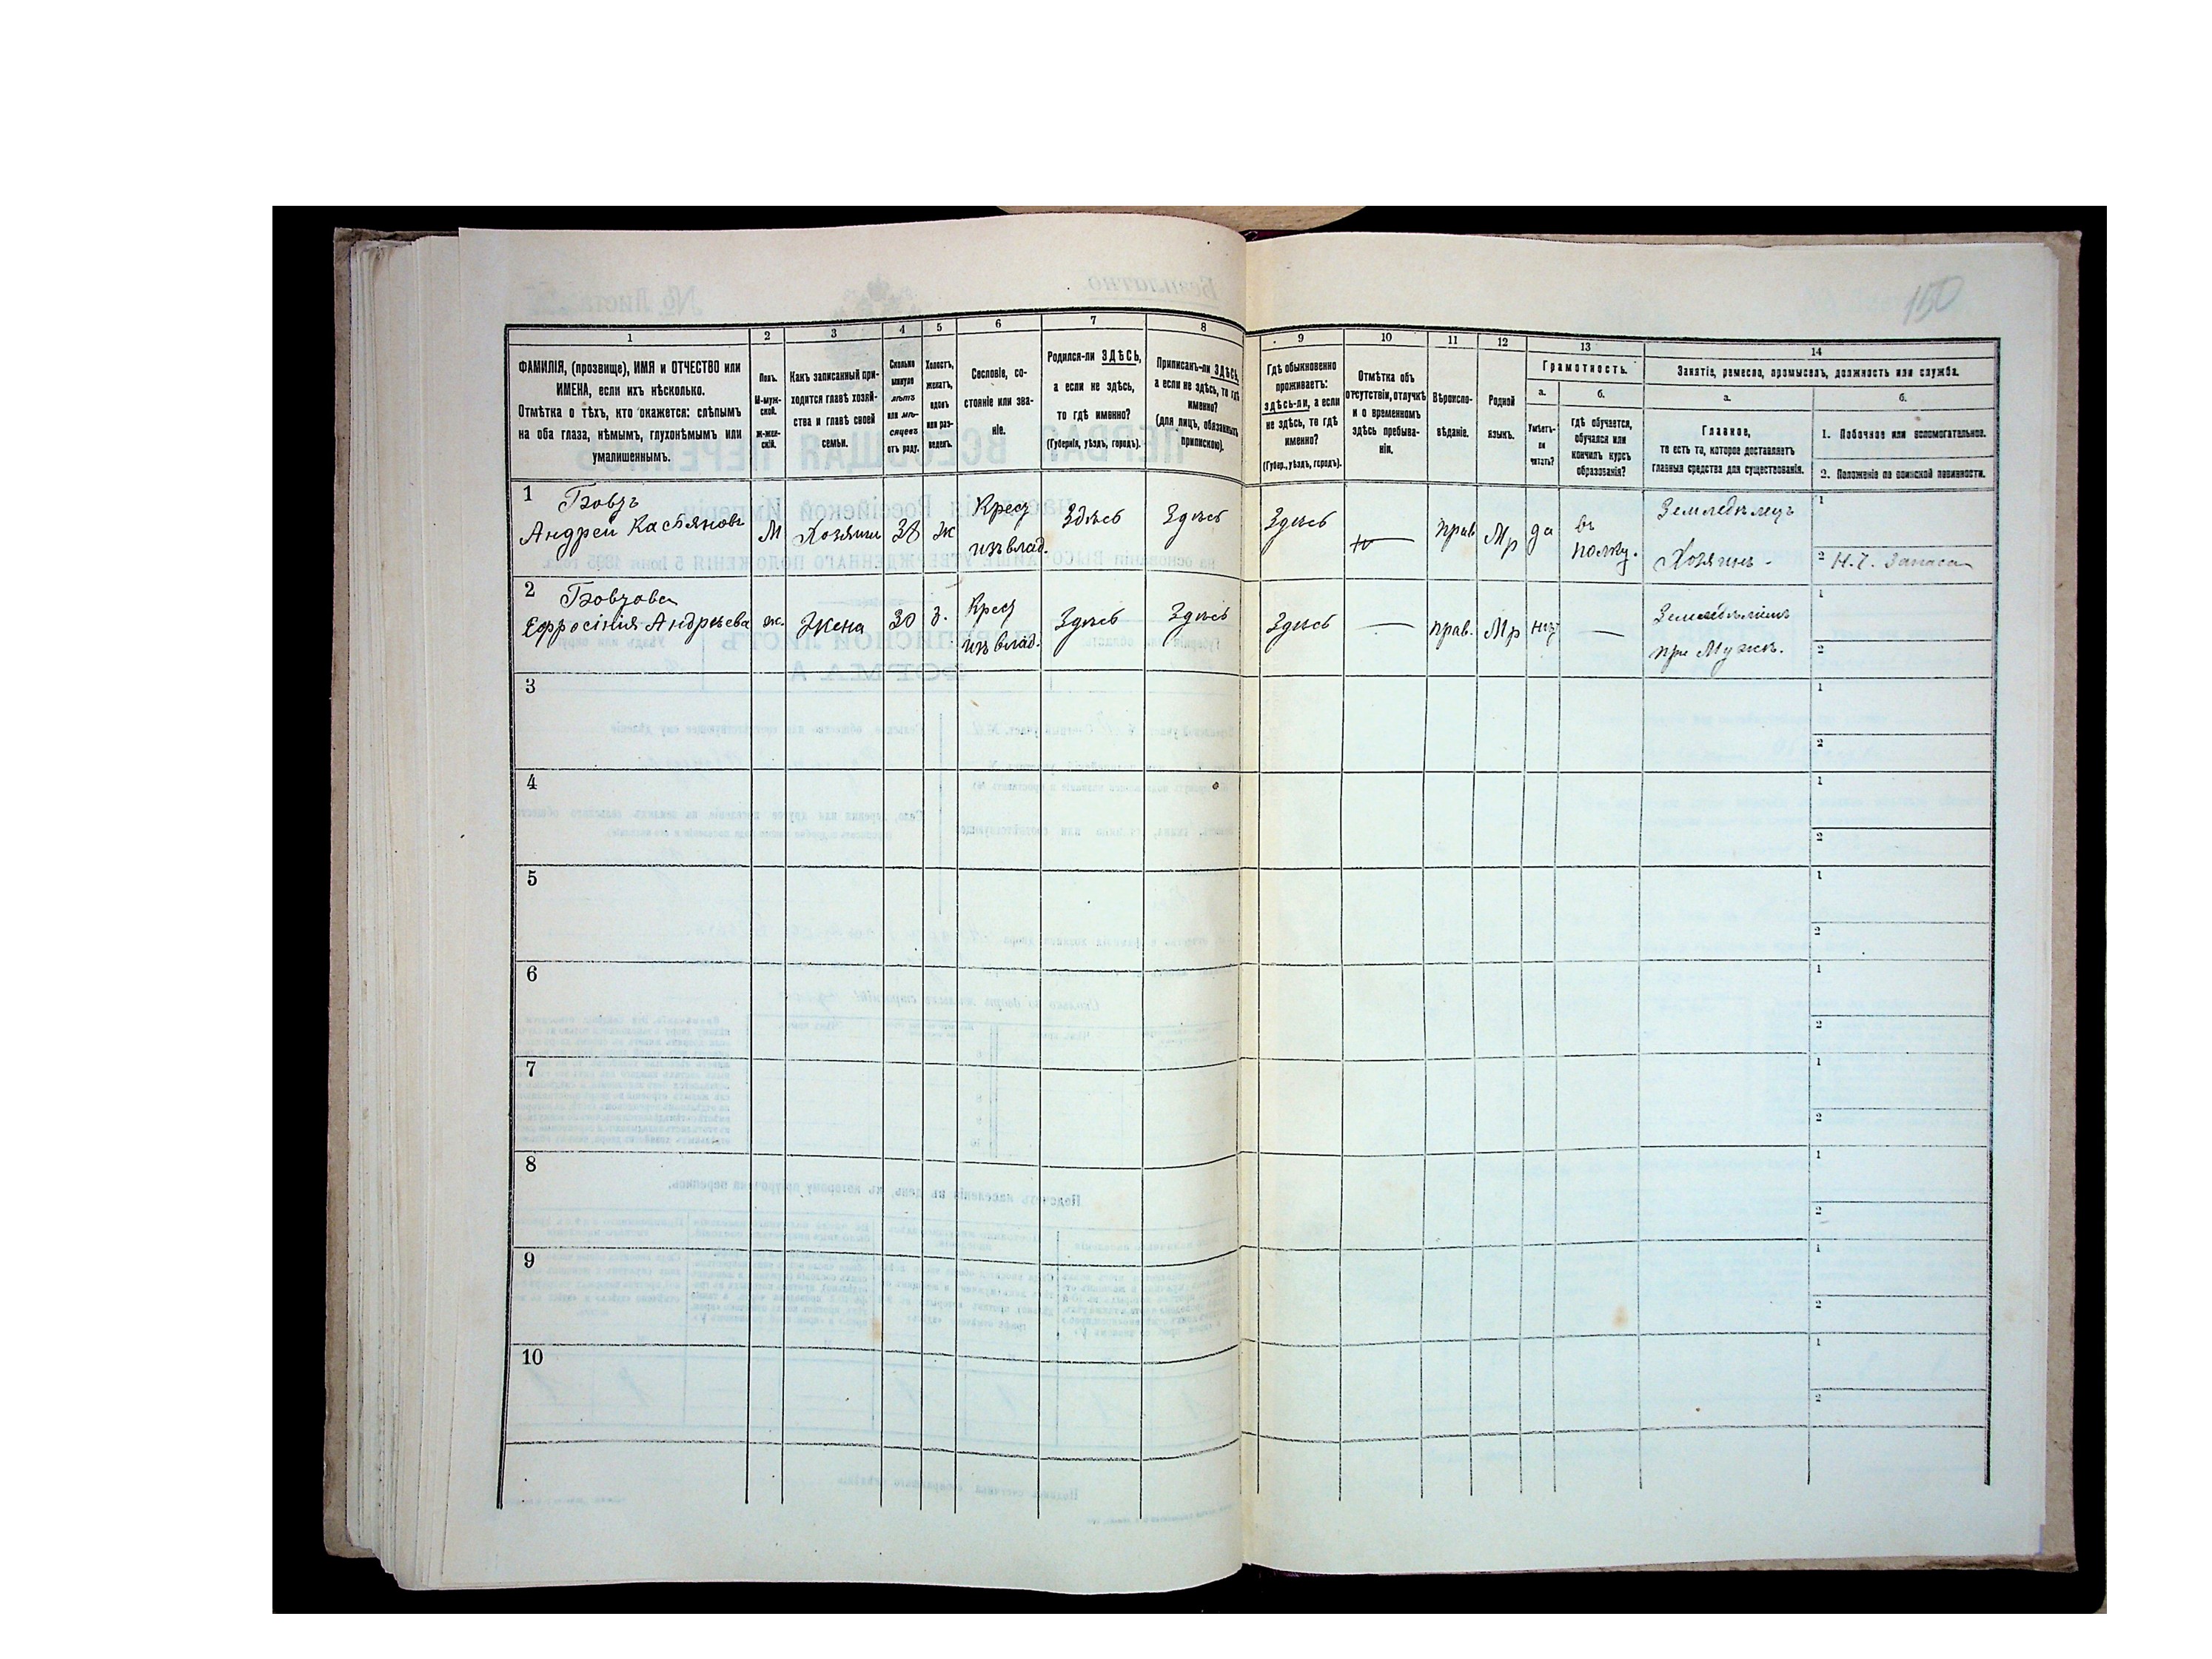 150
1
2
3
4
5
6
7
8
9
10
11
12
13
14
ФАМИЛІЯ, (прозвище), ИМЯ и ОТЧЕСТВО или
ИМЕНА, если ихъ нѣсколько.
Отмѣтка о тѣхъ, кто окажется: слѣпымъ
на оба глаза, нѣмымъ, глухонѣмымъ или
умалишеннымъ.
Полъ.
М-муж-
ской.
Ж-жен-
скій.
Какъ записанный при-
ходится главѣ хозяй-
ства и главѣ своей
семьи.
Сколько
минуло
лѣтъ
или мѣ-
сяцевъ
отъ роду.
Холостъ,
женатъ,
вдовъ
или раз-
веденъ.
Сословіе, со-
стояніе или зва-
ніе.
Родился-ли ЗДѢСЬ,
а если не здѣсь,
то гдѣ именно?
(Губернія, уѣздъ, городъ).
Приписанъ-ли ЗДѢСЬ,
а если не здѣсь, то гдѣ
именно?
(для лицъ, обязанныхъ
припискою).
Гдѣ обыкновенно
проживаетъ:
здѣсь-ли, а если
не здѣсь, то гдѣ
именно?
(Губер., уѣздъ, городъ).
Отмѣтка объ
отсутствіи, отлучкѣ
и о временномъ
здѣсь пребыва-
ніи.
Вѣроиспо-
вѣданіе.
Родной
языкъ.
Грамотность.
а.
Умѣетъ-
ли
читать?
б.
гдѣ обучается,
обучался или
кончилъ курсъ
образованія?
Занятіе, ремесло, промыселъ, должность или служба.
а.
Главное,
то есть то, которое доставляетъ
главныя средства для существованія.
б.
1. Побочное или вспомогательное.
2. Положеніе по воинской повинности.
1
Андрей Касьяновъ
М
Хозяинъ
38
ж
Крест
изъ влад.
Здѣсь
Здѣсь
Здѣсь
прав
Мр
да
въ
полку.
Земледѣлецъ
Хозяинъ -
1
2 Н. Ч. Запаса
2
Ефросінія Андрѣева
ж.
Жена
30
з.
Крест
изъ влад.
Здѣсь
Здѣсь
Здѣсь
—
прав.
Мр
нѣт
—
при Мужѣ.
1
2
3
1
2
4
1
2
5
1
2
6
1
2
7
1
2
8
1
2
9
1
2
10
1
2